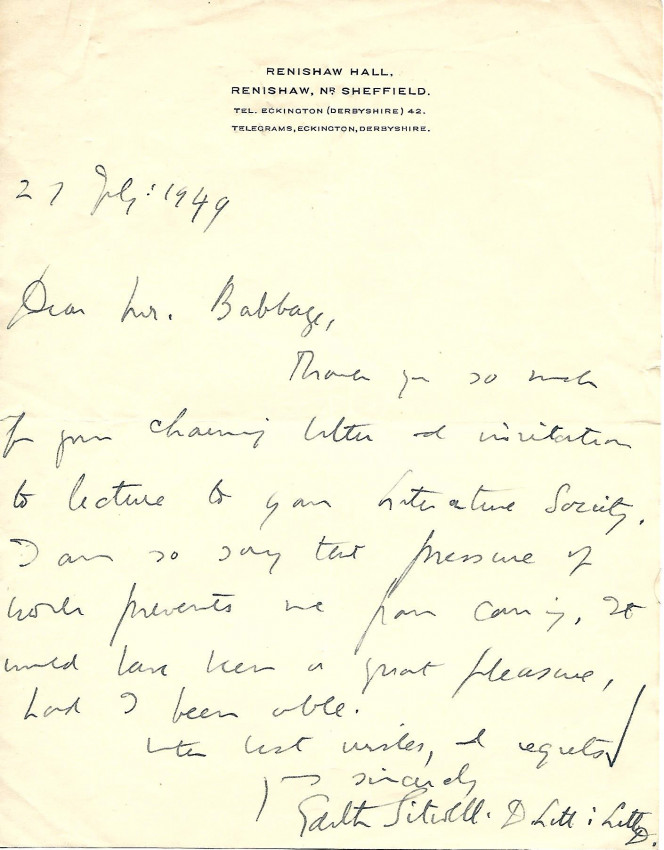 RENISHAW HALL,
RENISHAW, NR SHEFFIELD.
TEL. ECKINGTON (DERBYSHIRE) 42.
TELEGRAMS, ECKINGTON, DERBYSHIRE.
27 July: 1949
Dear Mr. Babbage,
Thank you so much
for your charming letter and invitation
to lecture to your Literature Society.
I am so sorry that pressure of
work prevents me from coming. It
would have been a great pleasure,
had I been able.
With best wishes, and regrets
Yrs sincerely
Edith Sitwell. D.Litt: Litt.D.